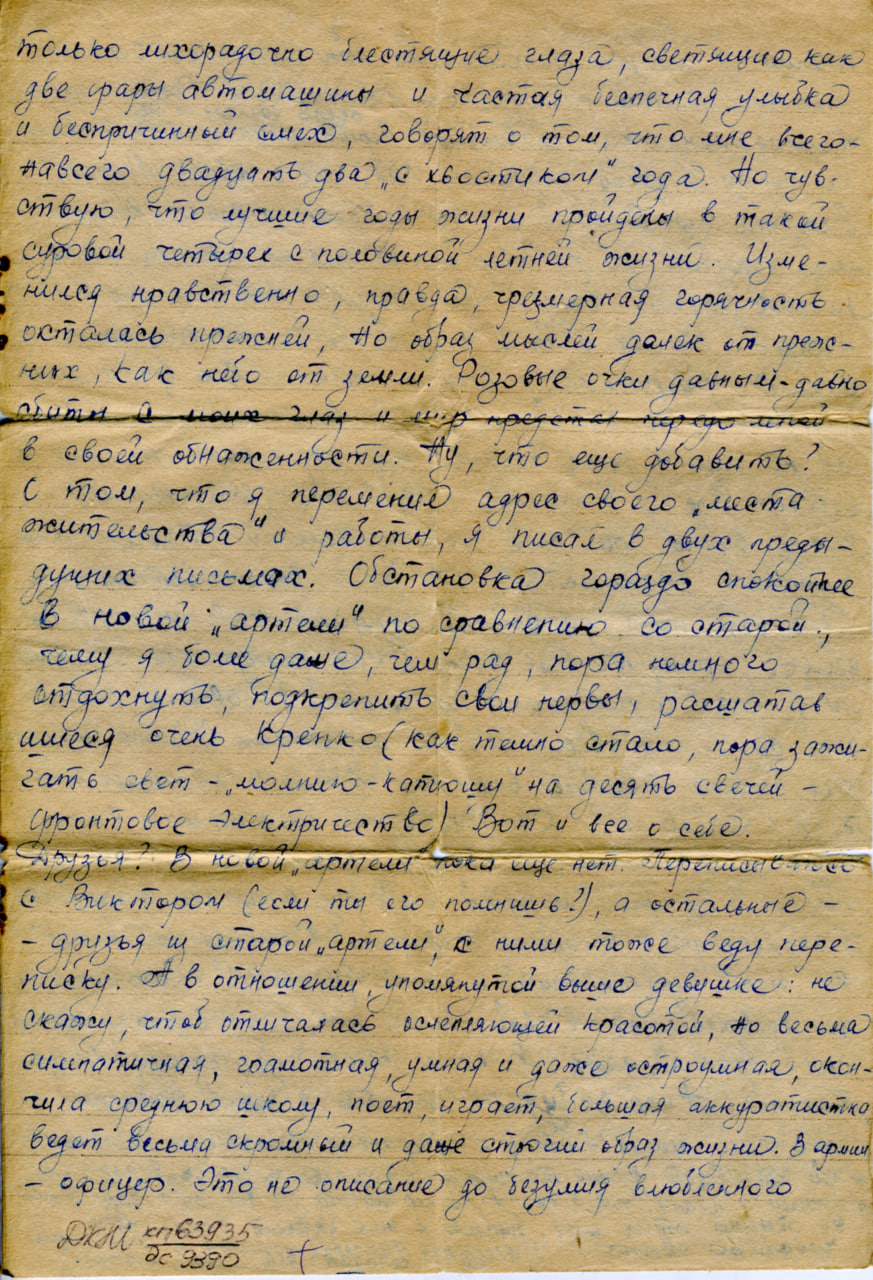 только лихорадочно блестящие глаза, светящие как
две фары автомашины и частая беспечная улыбка
и беспричинный смех, говорят о том, что мне всего-
навсего двадцать два „с хвостиком" года. Но чув-
ствую, что лучшие годы жизни пройдены в такой
суровой четырех с половиной летней жизни. Изме-
нился нравственно, правда, чрезмерная горячность
окталась прежней, но образ мыслей далек от преж-
них, как небо от земли. Розовые очки давным-давно
сбиты с моих глаз и мир предстал передо мной
в своей обнаженности. Ну, что еще добавить?
О том, что я переменил адрес своего „места
жительства" и работы, я писал в двух преды-
дущих письмах. Обстановка гораздо спокойнее
в новой „артели" по сравнению со старой,
чему я более даже, чем рад, пора немного
отдохнуть, подкрепить свои нервы, расшатав
шиеся очень крепко (как темно стало, пора зажи-
гать свет - „молнию-катюшу" на десять свечей -
фронтовое электричество) Вот и все о себе.
Друзья? В новой „артели" пока еще нет. Переписываюсь
с Виктором (если ты его помнишь?), а остальные -
- друзья из старой „артели", с ними тоже веду пере-
писку. А в отношении, упомянутой выше девушке: не
скажу, чтоб отличалась ослепляющей красотой, но весьма
симпатичная, грамотная, умная и даже остроумная, окон-
чила среднюю школу, поет, играет, большая аккуратистка
ведет весьма скромный и даже строгий образ жизни. В армии
- офицер. Это не описание до безумия влюбленного
ДКМ кп63935
дс 9390